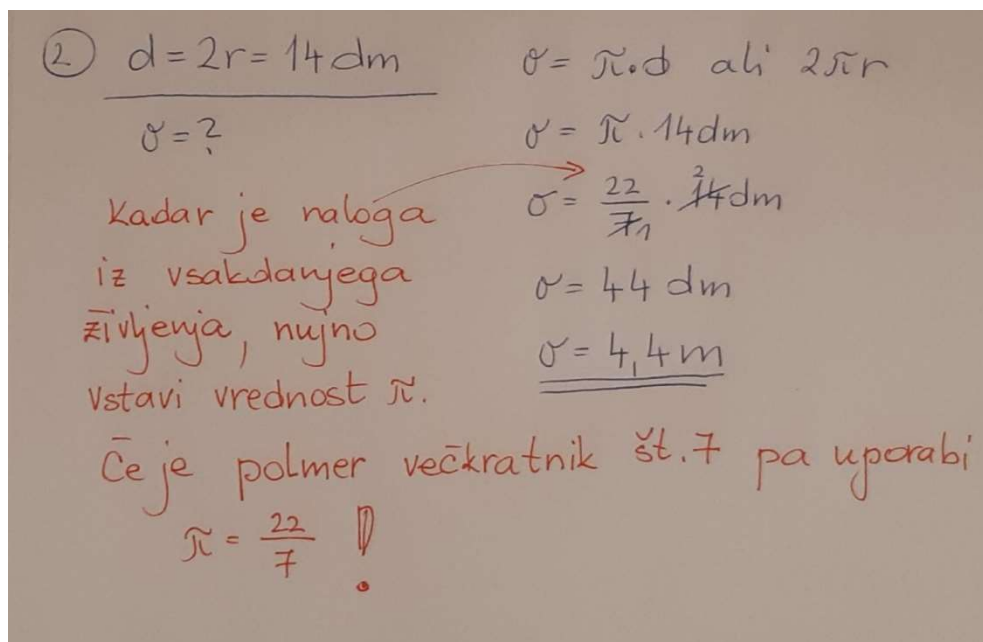 ② d = 2r = 14 dm
o = ?
o = π·d ali 2πr
o = π · 14 dm
o = 22/7 1 · 14 2 dm
o = 44 dm
o = 4,4 m
Kadar je naloga
iz vsakdanjega
življenja, nujno
vstavi vrednost π.
Če je polmer večkratnik št. 7 pa uporabi
π = 22/7 !